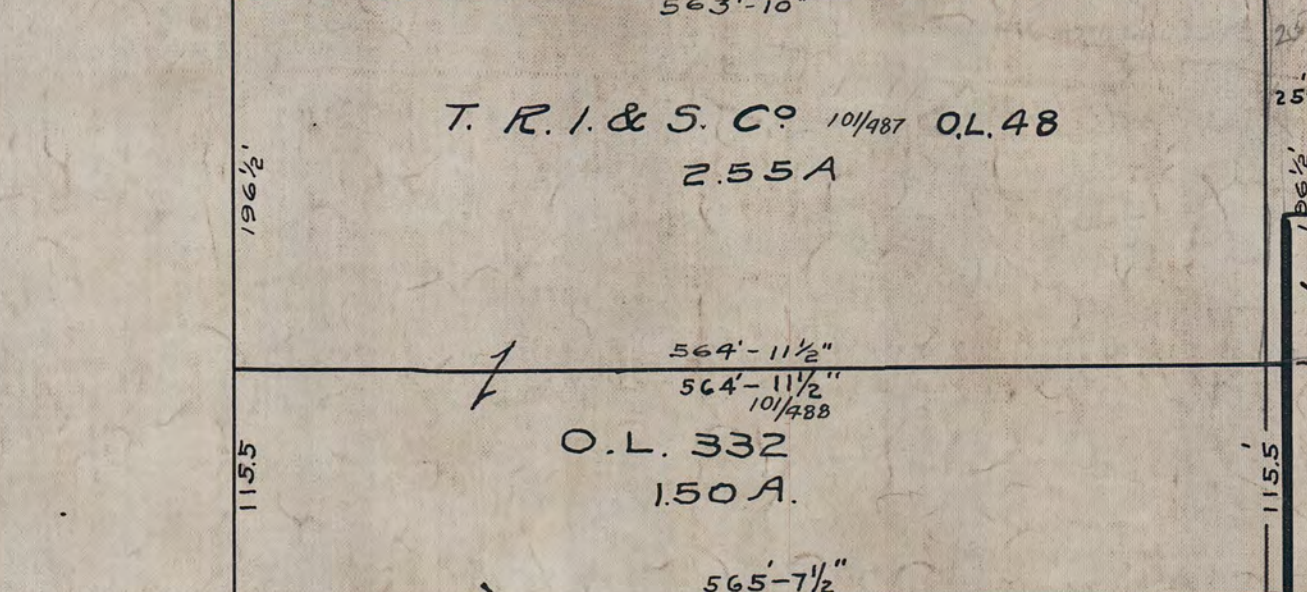 563'-10"
25'
T. R. I. & S. Cº 101/487 O.L. 48
2.55 A
196½'
196½'
564'-11½"
564'-11½"
101/488
O.L. 332
1.50 A.
115.5
115.5'
565'-7½"